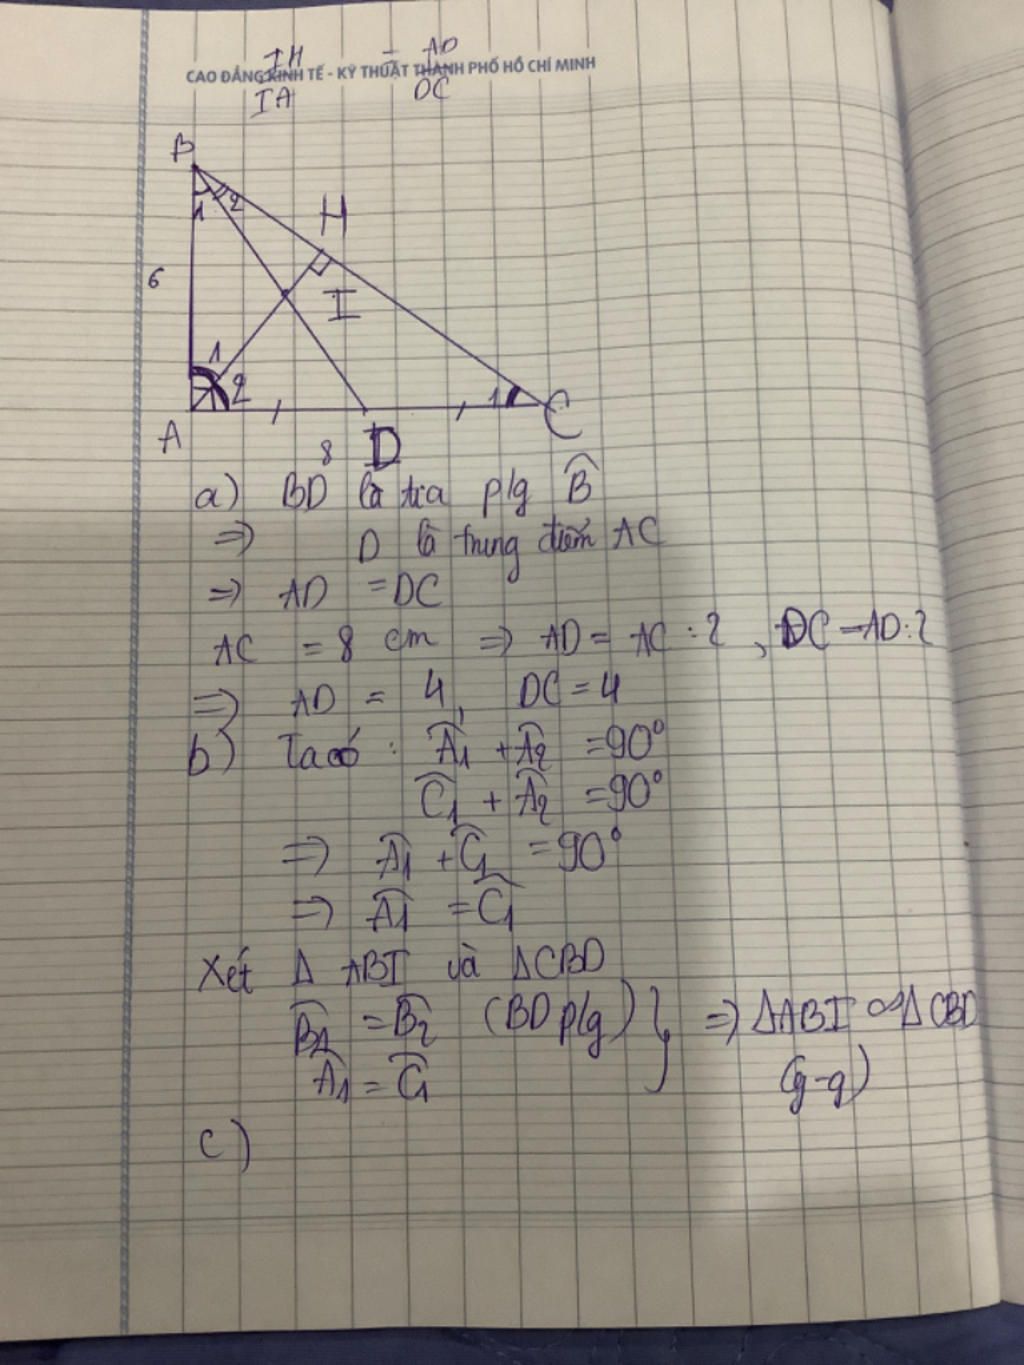 IH = AD
CAO ĐẲNG KINH TẾ - KỸ THUẬT THÀNH PHỐ HỒ CHÍ MINH
IA DC
B
1 2
H
6
I
1
2
1
A
8 D
C
a) BD là tia p/g B̂
=> D là trung điểm AC
=> AD = DC
AC = 8 cm => AD = AC : 2 , DC = AD : 2
=> AD = 4, DC = 4
b) Ta có : Â1 + Â2 = 90°
Ĉ1 + Â2 = 90°
=> Â1 + Ĉ1 = 90°
=> Â1 = Ĉ1
Xét Δ ABI và ΔCBD
B̂1 = B̂2 (BD p/g) } => ΔABI ∽ Δ CBD
Â1 = Ĉ1 (g-g)
c)